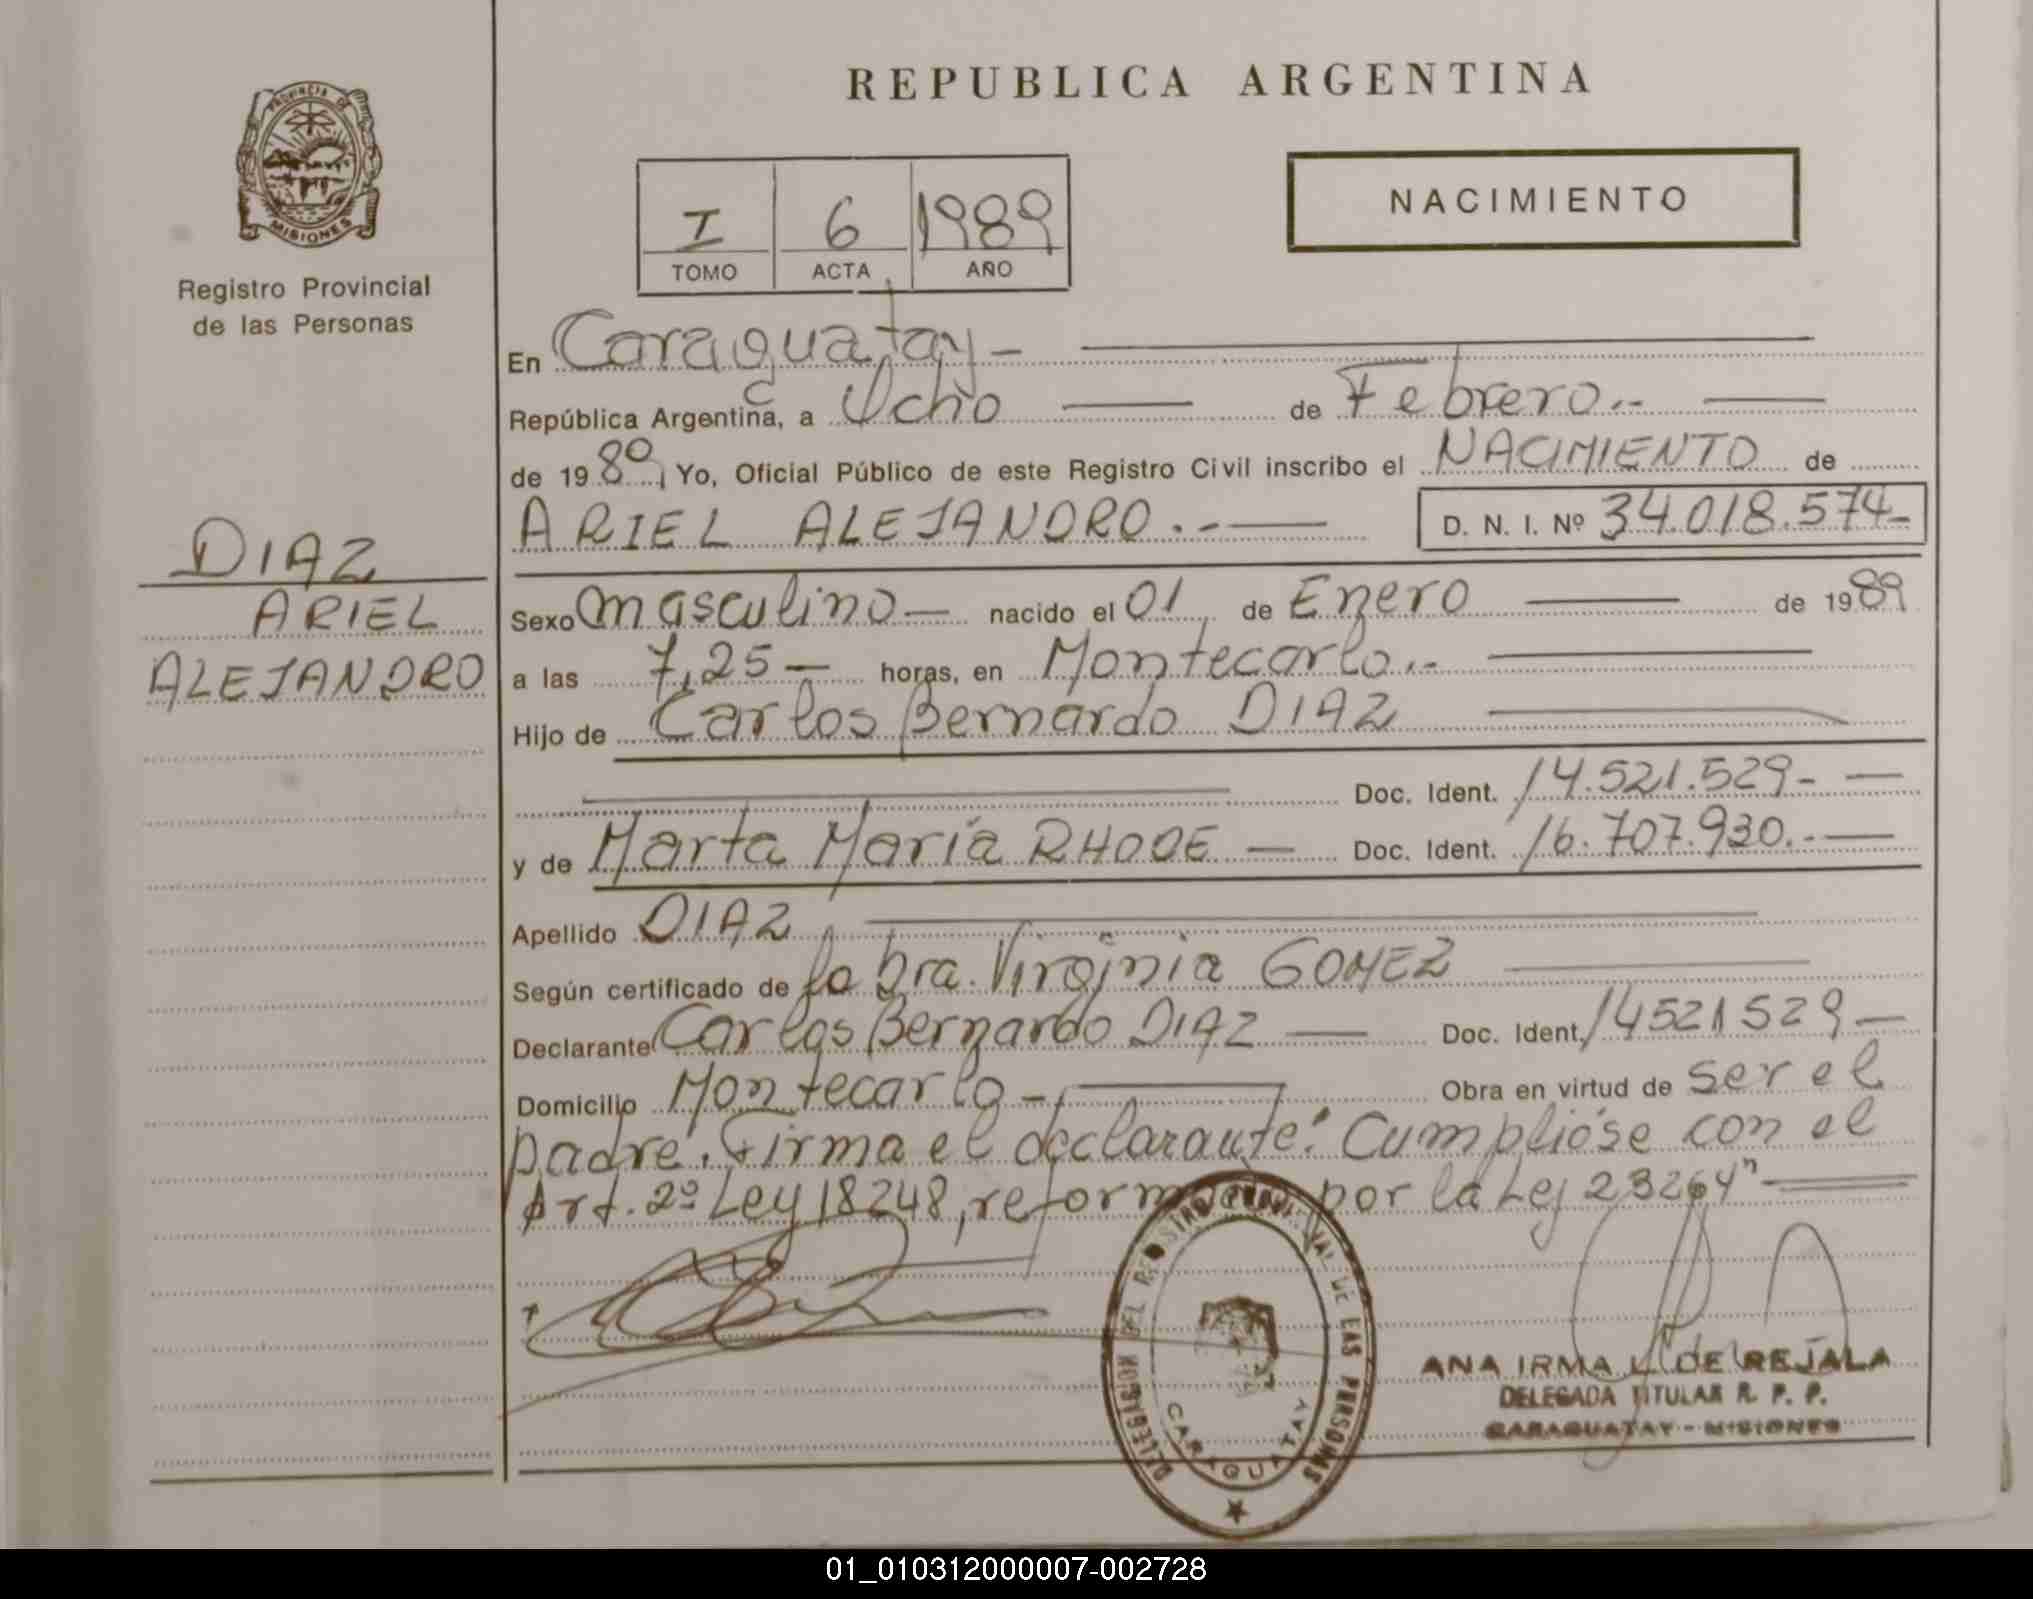 REPUBLICA ARGENTINA
PROVINCIA DE
MISIONES
Registro Provincial
de las Personas
NACIMIENTO
I 6 1989
TOMO ACTA AÑO
En Caraguatay -
República Argentina, a Ocho de Febrero.-
de 1989, Yo, Oficial Público de este Registro Civil inscribo el NACIMIENTO de
ARIEL ALEJANDRO.- D. N. I. Nº 34.018.574-
DIAZ
ARIEL
ALEJANDRO
Sexo masculino- nacido el 01 de Enero de 1989
a las 7,25- horas, en Montecarlo.-
Hijo de Carlos Bernardo DIAZ
Doc. Ident. 14.521.529-
y de Marta María RHODE - Doc. Ident. 16.707.930.-
Apellido DIAZ
Según certificado de la Dra. Virginia GOMEZ
Declarante Carlos Bernardo DIAZ Doc. Ident. 14521529-
Domicilio Montecarlo - Obra en virtud de ser el
padre. Firma el declarante." Cumplióse con el
Art. 2º Ley 18248, reformada por la Ley 23264"
DELEGACION DEL REGISTRO PROVINCIAL DE LAS PERSONAS
CARAGUATAY
ANA IRMA L. DE REJALA
DELEGADA TITULAR R. P. P.
CARAGUATAY - MISIONES
01_010312000007-002728